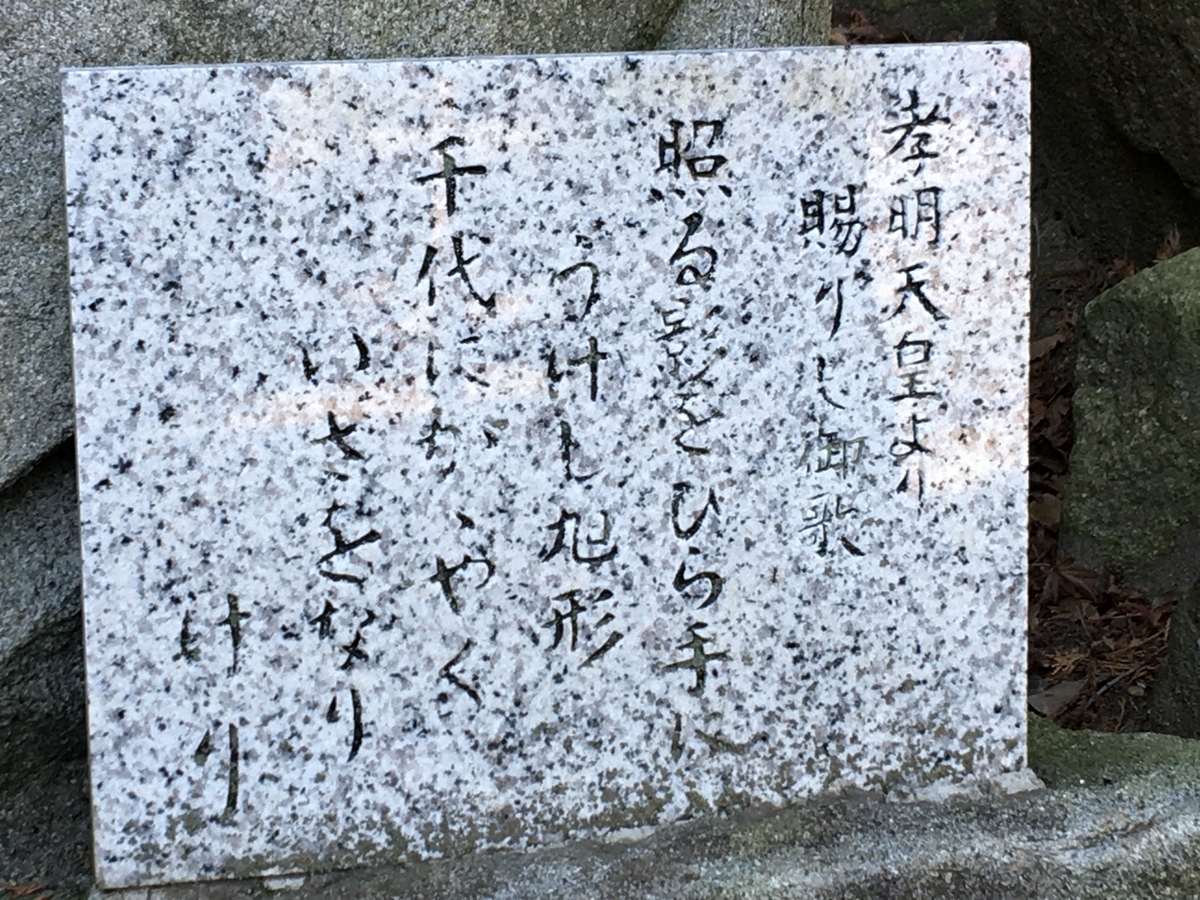 孝明天皇より
賜りし御歌
照る影をひら手に
うけし旭形
千代にかゞやく
いさをなり
けり